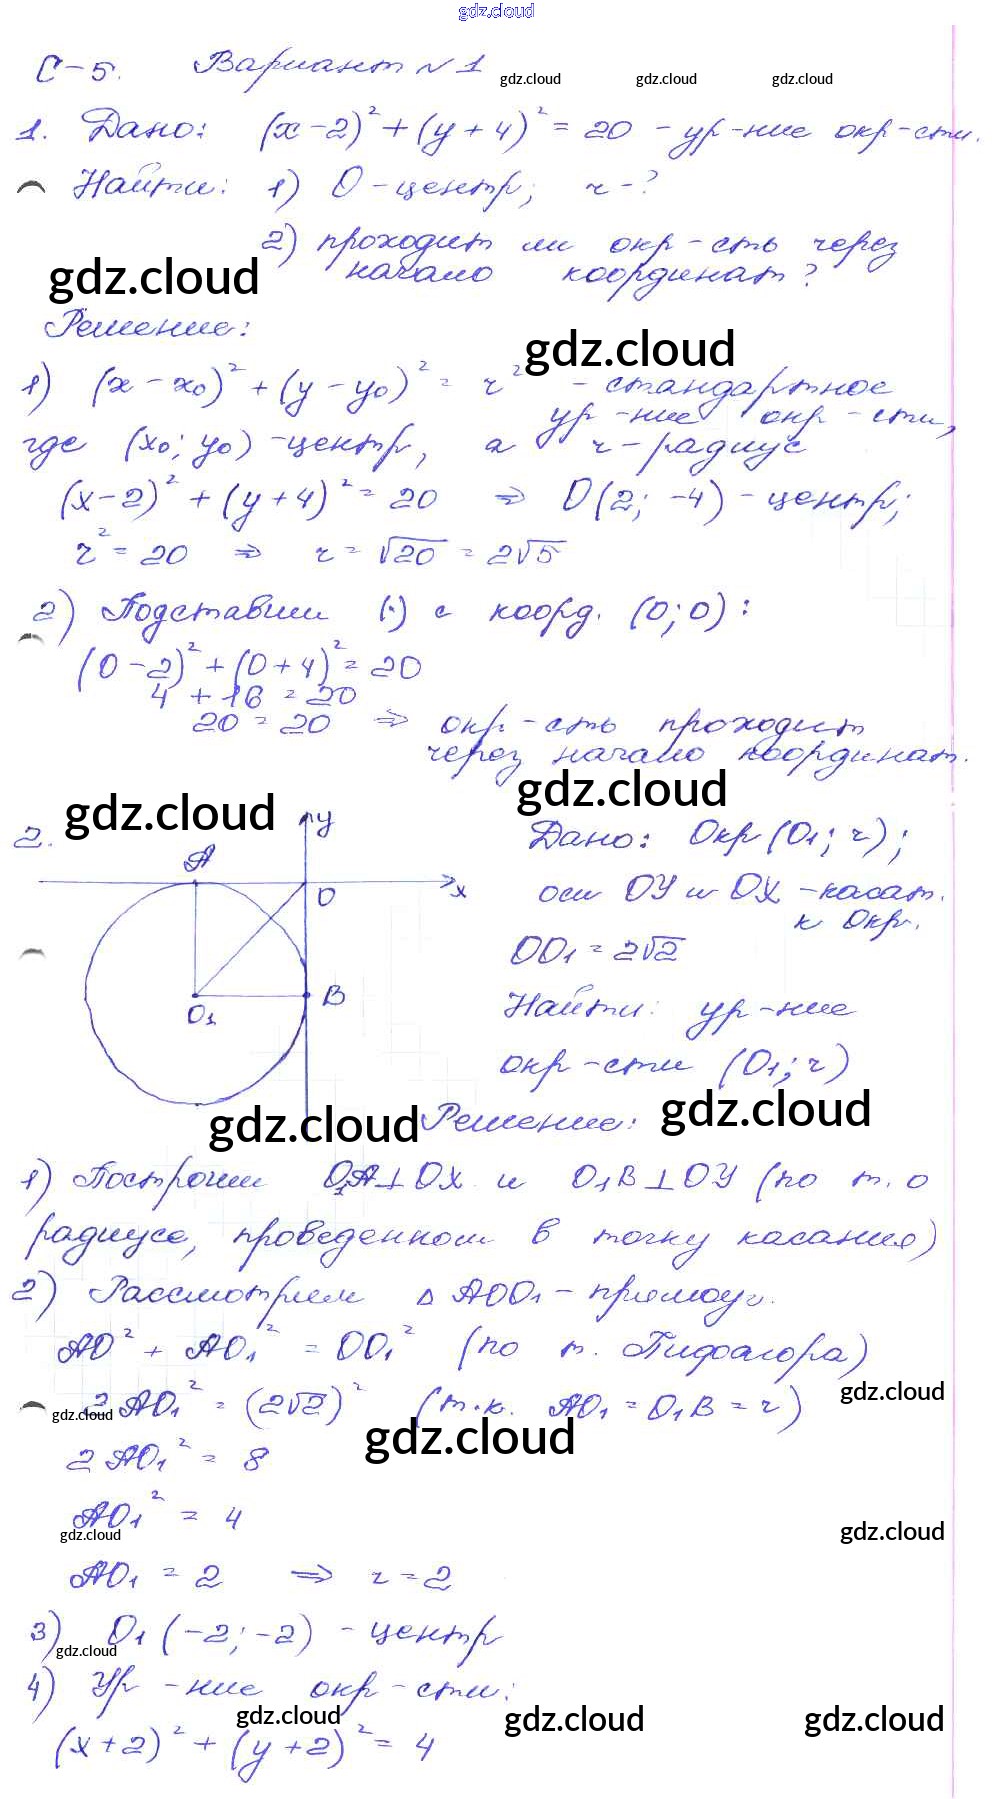 gdz.cloud
С-5. Вариант №1
gdz.cloud gdz.cloud gdz.cloud
1. Дано: (x-2)² + (y+4)² = 20 - ур-ние окр-сти.
Найти: 1) O - центр; r - ?
2) проходит ли окр-сть через
начало координат?
gdz.cloud
Решение:
gdz.cloud
1) (x - x₀)² + (y - y₀)² = r² - стандартное
ур-ние окр-сти,
где (x₀; y₀) - центр, а r - радиус
(x-2)² + (y+4)² = 20 ⇒ O(2; -4) - центр;
r² = 20 ⇒ r = √20 = 2√5
2) Подставим (·) с коорд. (0; 0):
(0-2)² + (0+4)² = 20
4 + 16 = 20
20 = 20 ⇒ окр-сть проходит
через начало координат.
gdz.cloud gdz.cloud
2. Дано: Окр(O₁; r);
y
A
x
O
B
O₁
оси OY и OX - касат.
к Окр.
OO₁ = 2√2
Найти: ур-ние
окр-сти (O₁; r)
gdz.cloud gdz.cloud
Решение:
1) Построим O₁A ⊥ OX и O₁B ⊥ OY (по т. о
радиусе, проведенном в точку касания)
2) Рассмотрим △ AOO₁ - прямоуг.
AO² + AO₁² = OO₁² (по т. Пифагора)
gdz.cloud
2 AO₁² = (2√2)² (т.к. AO₁ = O₁B = r)
gdz.cloud gdz.cloud
2 AO₁² = 8
AO₁² = 4
gdz.cloud gdz.cloud
AO₁ = 2 ⇒ r = 2
3) O₁ (-2; -2) - центр
gdz.cloud
4) Ур-ние окр-сти:
gdz.cloud gdz.cloud gdz.cloud
(x+2)² + (y+2)² = 4